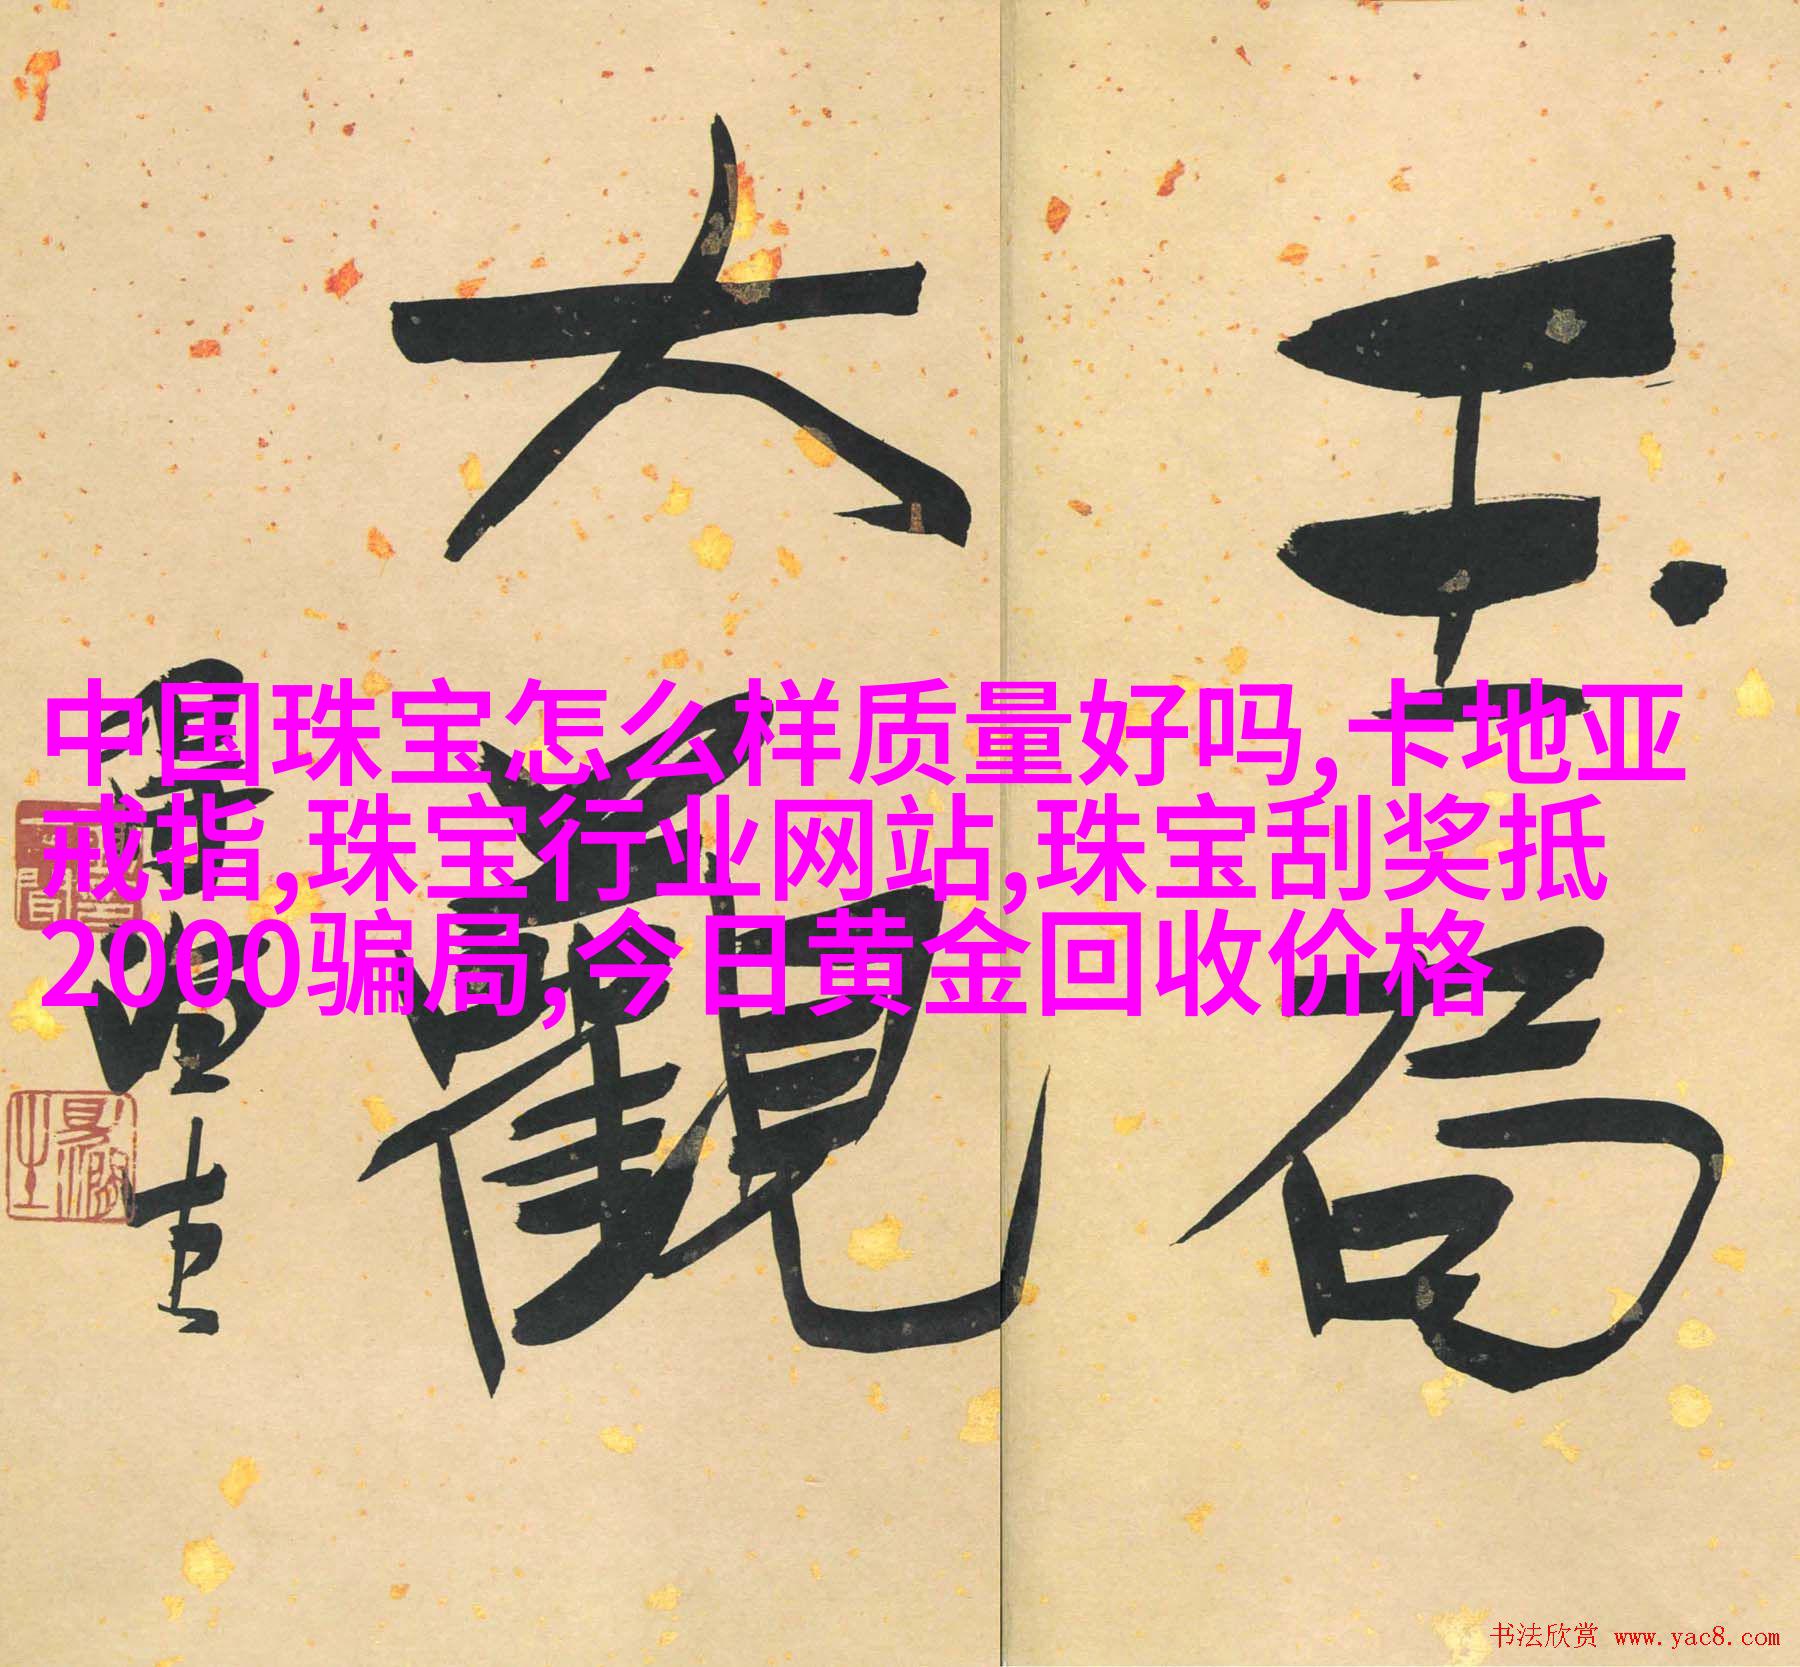 中国珠宝怎么样质量好吗,卡地亚
戒指,珠宝行业网站,珠宝刮奖抵
2000骗局,今日黄金回收价格
玉局
大觀
书法欣赏 www.yac8.com